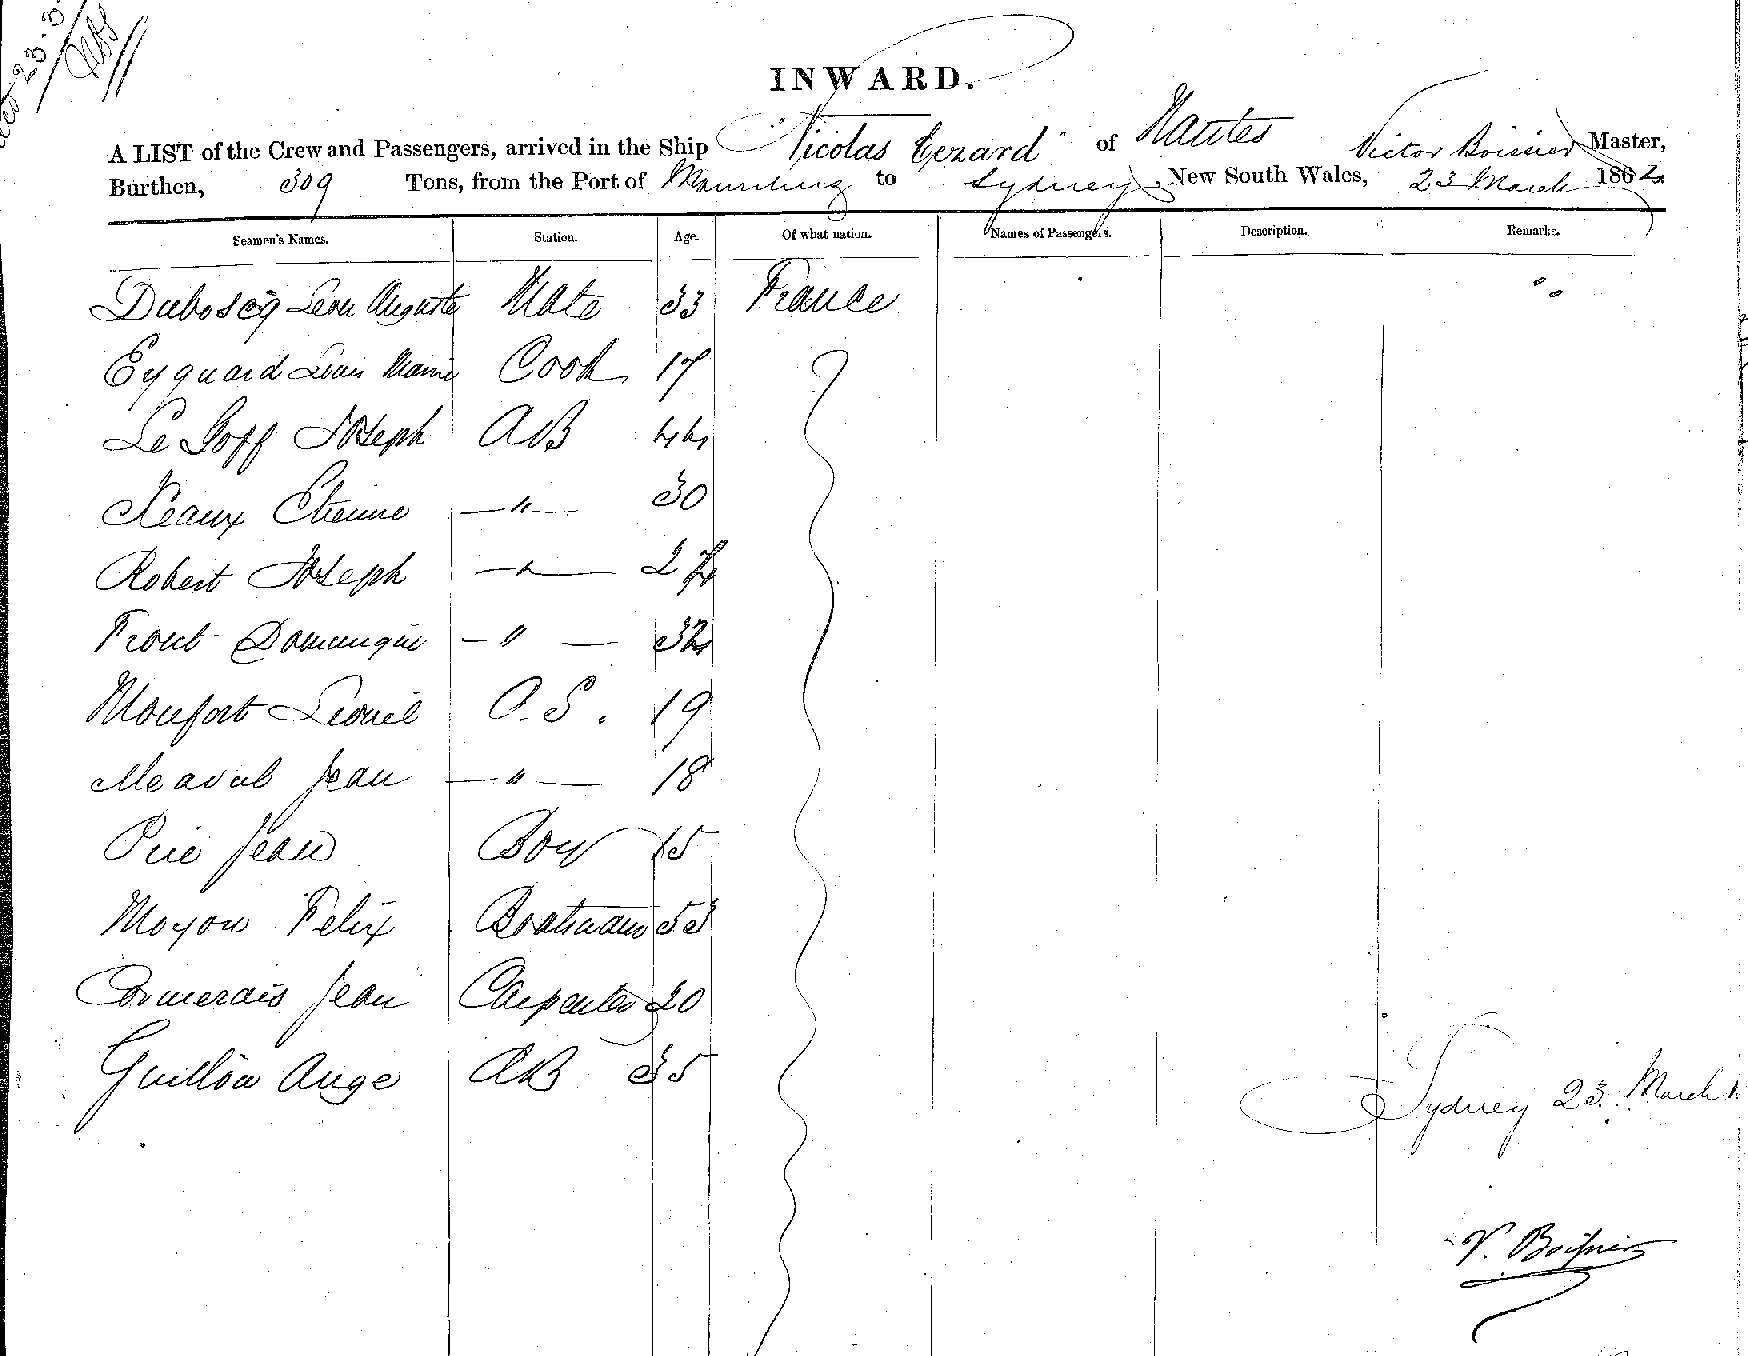 INWARD.
A LIST of the Crew and Passengers, arrived in the Ship "Nicolas Cezard" of Nantes Victor Boissier Master,
Burthen, 309 Tons, from the Port of Mauritius to Sydney, New South Wales, 23 March 1862
Seamen's Names. Station. Age. Of what nation. Names of Passengers. Description. Remarks.
Duboscq Leon Auguste Mate 33 France
Eyquard Louis Marie Cook 17
Le Goff Joseph AB 44
Neaux Etienne — " — 30
Robert Joseph — " — 24
Trout Dominique — " — 34
Monfort Leonil O.S. 19
Meaval Jean — " — 18
Pie Jean Boy 15
Moyon Felix Boatswain 53
Cormerais Jean Carpenter 20
Guillou Ange AB 35
Sydney 23 March
V. Boissier